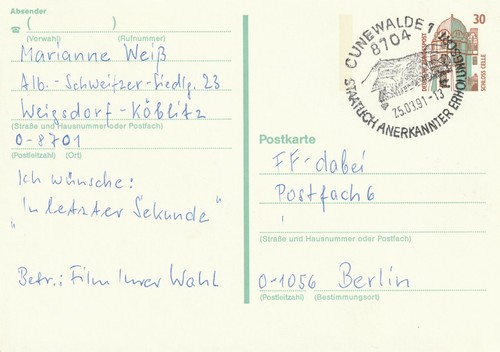 Absender
( )
(Vorwahl) (Rufnummer)
Marianne Weiß
Alb.-Schweitzer-Siedlg. 23
Weigsdorf-Köblitz
(Straße und Hausnummer oder Postfach)
O-8701
(Postleitzahl) (Ort)
Ich wünsche:
"In letzter Sekunde"
Betr.: Film Ihrer Wahl
CUNEWALDE 1
8704
25.01.91-13
STAATLICH ANERKANNTER ERHOLUNGSORT
DEUTSCHE BUNDESPOST
30
SCHLOSS CELLE
Postkarte
FF-dabei
Postfach 6
(Straße und Hausnummer oder Postfach)
O-1056 Berlin
(Postleitzahl) (Bestimmungsort)